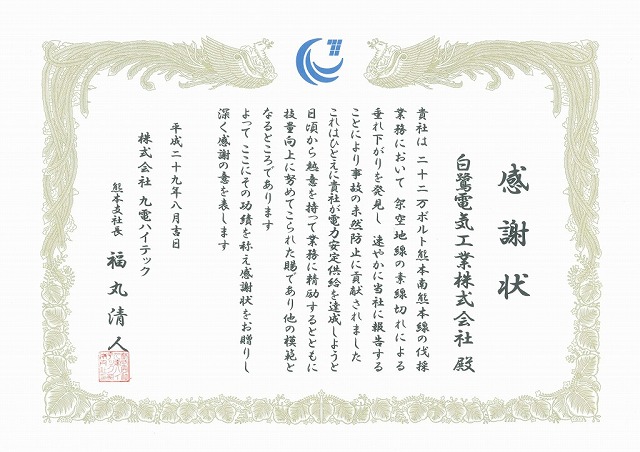 感謝状
白鷺電気工業株式会社 殿
貴社は 二十二万ボルト熊本南熊本線の伐採
業務において 架空地線の素線切れによる
垂れ下がりを発見し 速やかに当社に報告する
ことにより事故の未然防止に貢献されました
これはひとえに貴社が電力安定供給を達成しようと
日頃から熱意を持って業務に精励するとともに
技量向上に努めてこられた賜であり他の模範と
なるところであります
よって ここにその功績を称え感謝状をお贈りし
深く感謝の意を表します
平成二十九年八月吉日
株式会社 九電ハイテック
熊本支社長 福丸清人